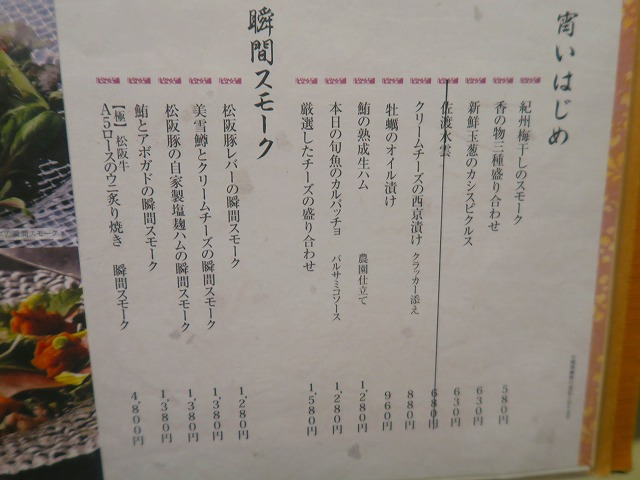 宵いはじめ
紀州梅干しのスモーク 580円
香の物三種盛り合わせ 630円
新鮮玉葱のカシスピクルス 630円
佐渡水雲 680円
クリームチーズの西京漬け クラッカー添え 880円
牡蠣のオイル漬け 960円
鮪の熟成生ハム 農園仕立て 1,280円
本日の旬魚のカルパッチョ バルサミコソース 1,280円
厳選したチーズの盛り合わせ 1,580円
瞬間スモーク
松阪豚レバーの瞬間スモーク 1,280円
美雪鱒とクリームチーズの瞬間スモーク 1,380円
松阪豚の自家製塩麹ハムの瞬間スモーク 1,380円
鮪とアボガドの瞬間スモーク 1,380円
【極】松阪牛
A5ロースのウニ炙り焼き 瞬間スモーク 4,800円